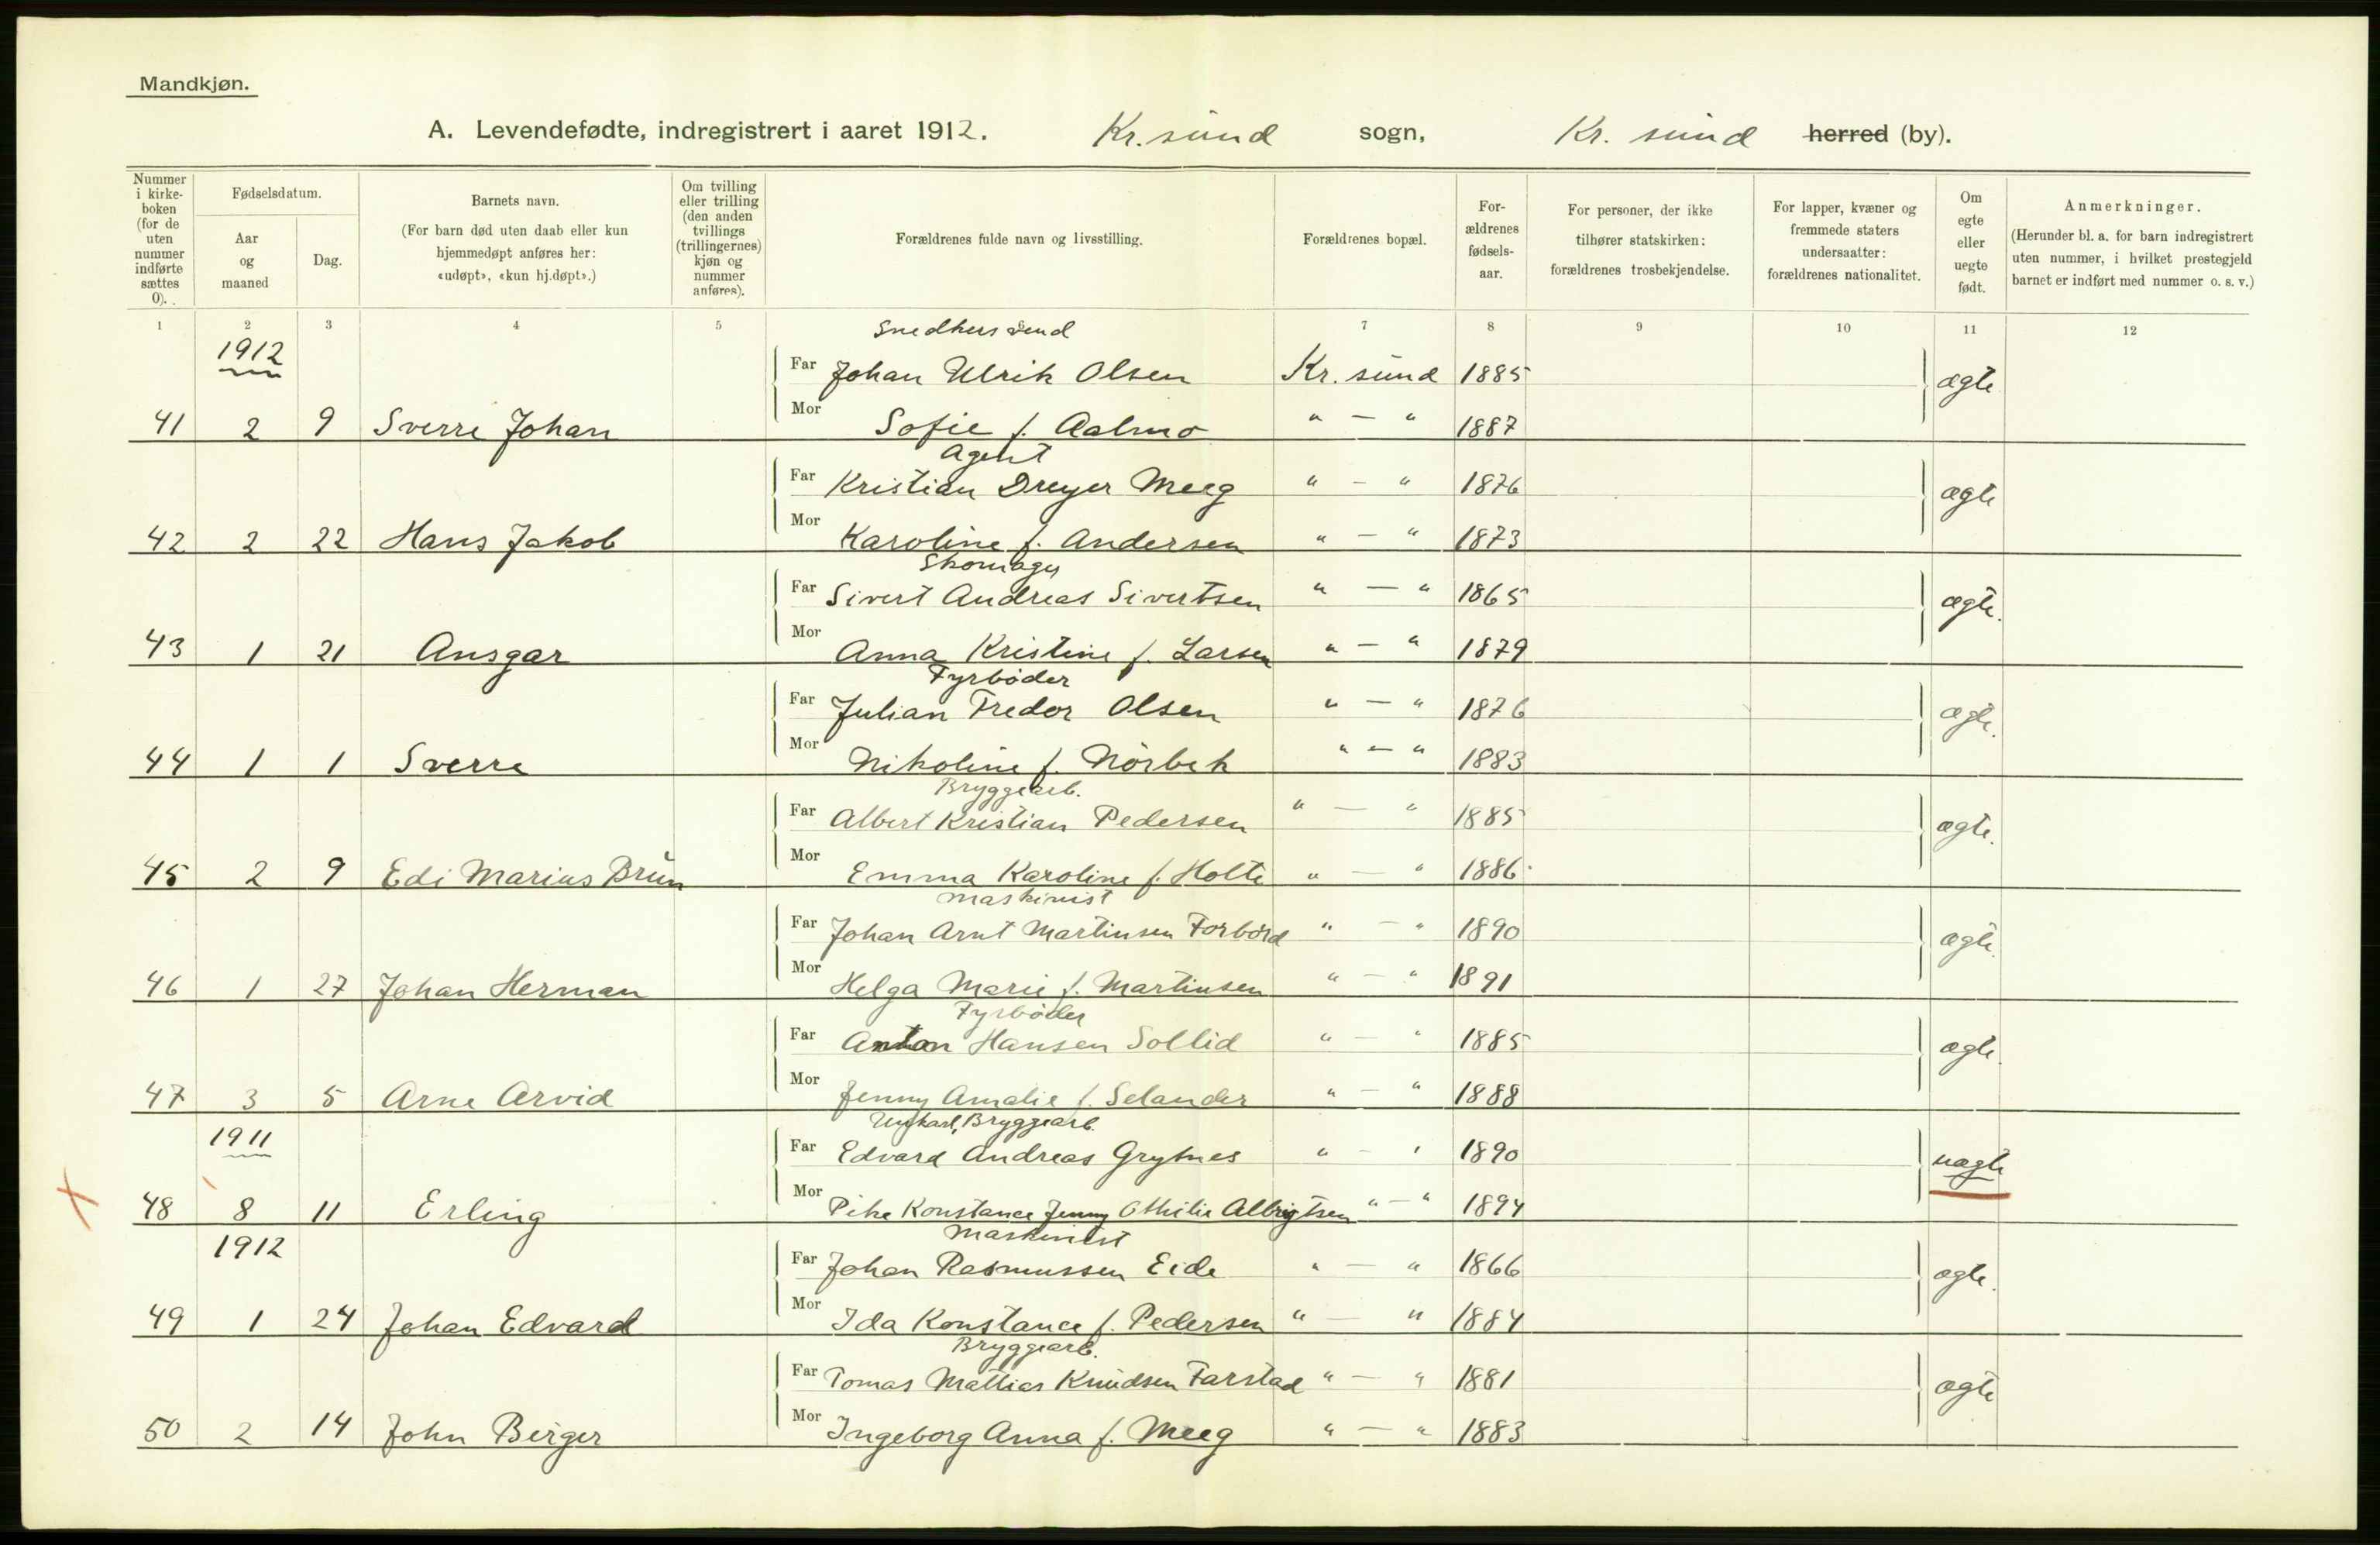 Mandkjøn.
A. Levendefødte, indregistrert i aaret 1912. Kr. sund sogn, Kr. sund herred (by).
Nummer i kirke-boken (for de uten nummer indførte sættes 0). Fødselsdatum. Aar og maaned Dag. Barnets navn. (For barn død uten daab eller kun hjemmedøpt anføres her: «udøpt», «kun hj.døpt».) Om tvilling eller trilling (den anden tvillings (trillingernes) kjøn og nummer anføres). Forældrenes fulde navn og livsstilling. Forældrenes bopæl. For-ældrenes fødsels-aar. For personer, der ikke tilhører statskirken: forældrenes trosbekjendelse. For lapper, kvæner og fremmede staters undersaatter: forældrenes nationalitet. Om egte eller uegte født. Anmerkninger. (Herunder bl. a. for barn indregistrert uten nummer, i hvilket prestegjeld barnet er indført med nummer o. s. v.)
1 2 3 4 5 6 7 8 9 10 11 12
1912 Snedkersvend
Far Johan Ulrik Olsen Kr. sund 1885 ægte
41 2 9 Sverre Johan Mor Sofie f. Aalmo " — " 1887
Agent
Far Kristian Dreyer Meeg " — " 1876 ægte
42 2 22 Hans Jakob Mor Karoline f. Andersen " — " 1873
Skomager
Far Sivert Andreas Sivertsen " — " 1865 ægte.
43 1 21 Ansgar Mor Anna Kristine f. Larsen " — " 1879
Fyrböder
Far Julian Fredor Olsen " — " 1876 ægte.
44 1 1 Sverre Mor Nikoline f. Nörbek " — " 1883
Bryggearb.
Far Albert Kristian Pedersen " — " 1885 ægte.
45 2 9 Edi Marius Brun Mor Emma Karoline f. Holte " — " 1886
Maskinist
Far Johan Arnt Martinsen Forbord " — " 1890 ægte.
46 1 27 Johan Herman Mor Helga Marie f. Martinsen " — " 1891
Fyrböder
Far Anton Hansen Sollid " — " 1885 ægte
47 3 5 Arne Arvid Mor Jenny Amalie f. Selander " — " 1888
1911 Ungkarl, Bryggearb.
Far Edvard Andreas Grytnes " — " 1890 uægte
48 8 11 Erling Mor Pike Konstance Jenny Othilie Albrigtsen " — " 1894
1912 Maskinist
Far Johan Rasmussen Eide " — " 1866 ægte.
49 1 24 Johan Edvard Mor Ida Konstance f. Pedersen " — " 1884
Bryggearb.
Far Tomas Mathias Knudsen Farstad " — " 1881 ægte
50 2 14 John Birger Mor Ingeborg Anna f. Meeg " — " 1883